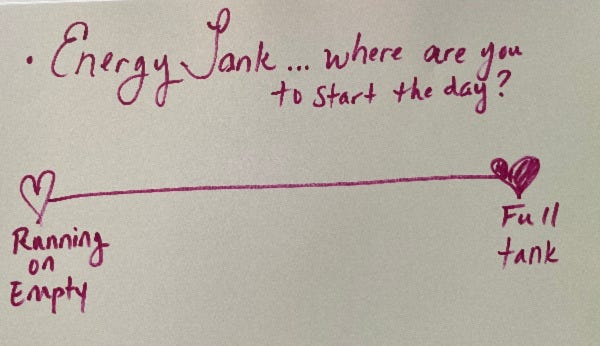 • Energy Tank... where are you
to start the day?
Running
on
Empty
Full
tank